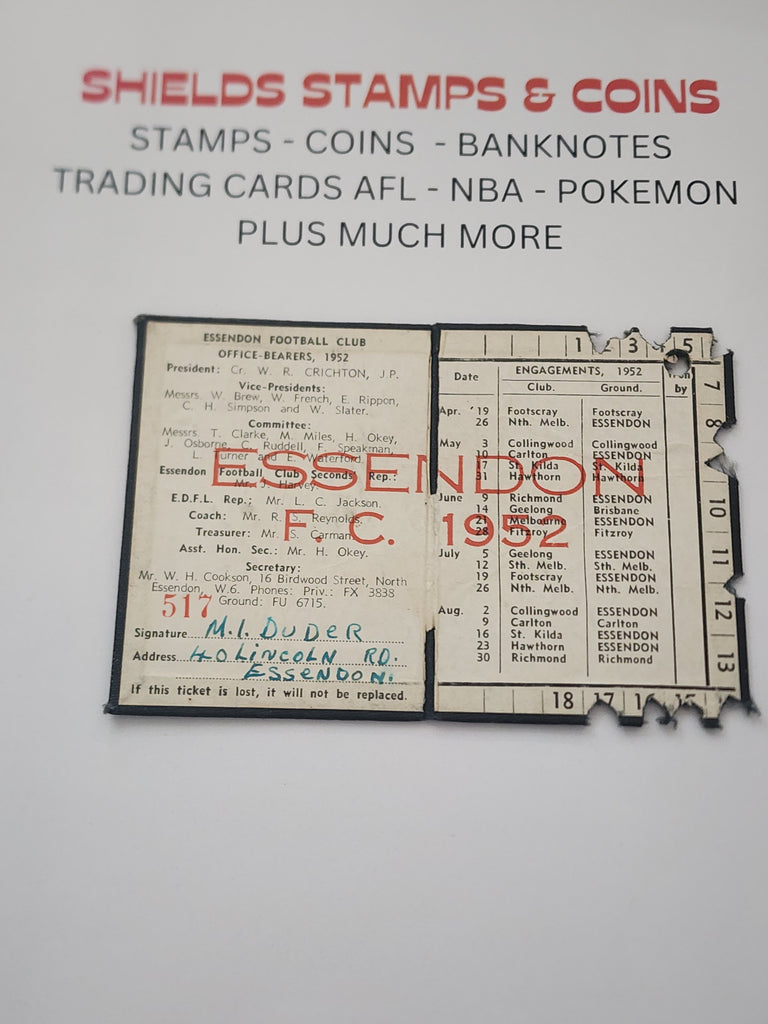 SHIELDS STAMPS & COINS
STAMPS - COINS - BANKNOTES
TRADING CARDS AFL - NBA - POKEMON
PLUS MUCH MORE
ESSENDON FOOTBALL CLUB
OFFICE-BEARERS, 1952
President: Cr. W. R. CRICHTON, J.P.
Vice-Presidents:
Messrs. W. Brew, W. French, E. Rippon,
C. H. Simpson and W. Slater.
Committee:
Messrs. T. Clarke, M. Miles, H. Okey,
J. Osborne, C. Ruddell, F. Speakman,
L. Turner and E. Waterford.
Essendon Football Club Seconds' Rep.:
Mr. J. Harvey.
E.D.F.L. Rep.; Mr. L. C. Jackson.
Coach: Mr. R. S. Reynolds.
Treasurer: Mr. S. Carman.
Asst. Hon. Sec.: Mr. H. Okey.
Secretary:
Mr. W. H. Cookson, 16 Birdwood Street, North
Essendon, W.6. Phones: Priv.: FX 3838
Ground: FU 6715.
517
Signature M.I. DUDER
Address 40 LINCOLN RD.
ESSENDON.
If this ticket is lost, it will not be replaced.
ESSENDON
F. C. 1952
1 2 3 4 5
Date ENGAGEMENTS, 1952 by
Club. Ground.
Apr. 19 Footscray Footscray
26 Nth. Melb. ESSENDON
May 3 Collingwood Collingwood
10 Carlton ESSENDON
17 St. Kilda St. Kilda
31 Hawthorn Hawthorn
June 9 Richmond ESSENDON
14 Geelong Brisbane
21 Melbourne ESSENDON
28 Fitzroy Fitzroy
July 5 Geelong ESSENDON
12 Sth. Melb. Sth. Melb.
19 Footscray ESSENDON
26 Nth. Melb. Nth. Melb.
Aug. 2 Collingwood ESSENDON
9 Carlton Carlton
16 St. Kilda ESSENDON
23 Hawthorn ESSENDON
30 Richmond Richmond
7
8
10
11
12
13
18 17 16 15